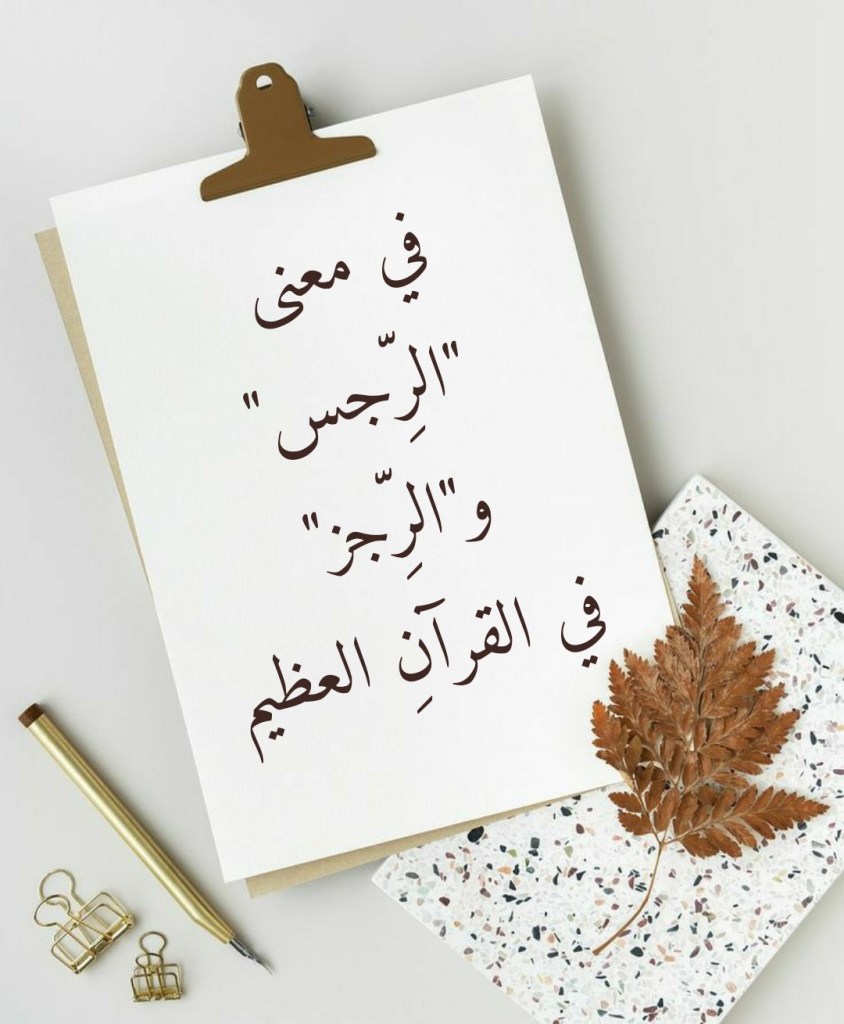 في معنى
"الرِّجس "
و"الرِّجز"
في القرآنِ العظيم